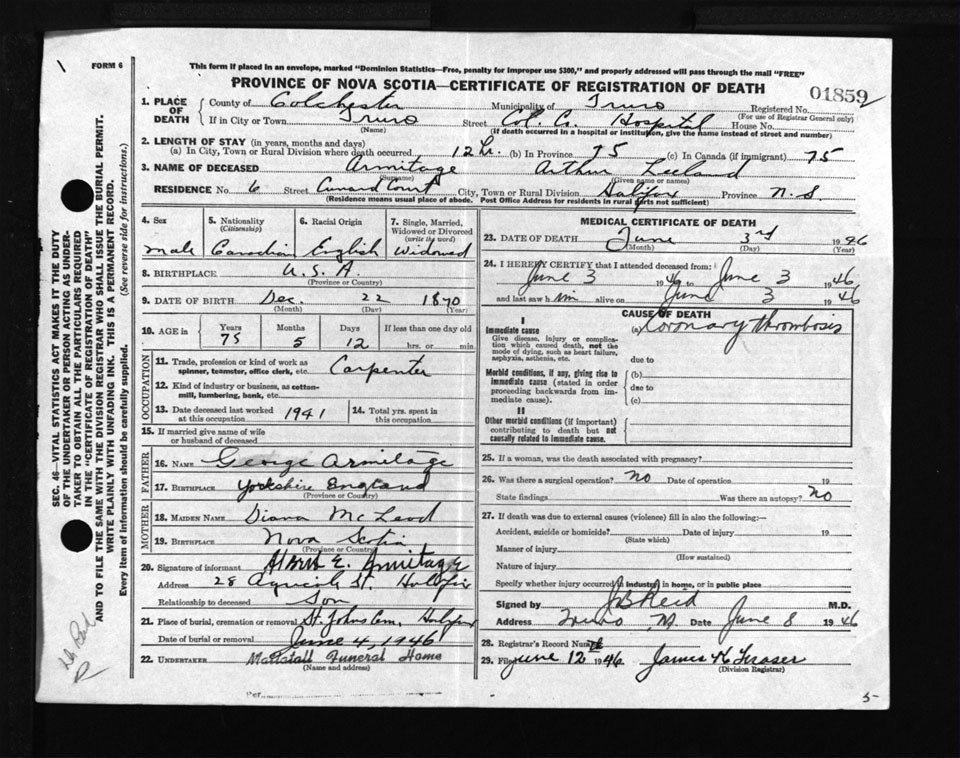 FORM 6
This form if placed in an envelope, marked "Dominion Statistics—Free, penalty for improper use $300," and properly addressed will pass through the mail "FREE"
PROVINCE OF NOVA SCOTIA—CERTIFICATE OF REGISTRATION OF DEATH
01859
1. PLACE OF DEATH County of Colchester Municipality of Truro Registered No.
(For use of Registrar General only)
If in City or Town Truro Street Col. Co. Hospital House No.
(Name) (If death occurred in a hospital or institution, give the name instead of street and number)
2. LENGTH OF STAY (in years, months and days)
(a) In City, Town or Rural Division where death occurred 12 hr. (b) In Province 75 (c) In Canada (if immigrant) 75
3. NAME OF DECEASED Armitage Arthur Leeland
(Surname) (Given name or names)
RESIDENCE No. 6 Street Cunard Court City, Town or Rural Division Halifax Province N.S.
(Residence means usual place of abode. Post Office Address for residents in rural parts not sufficient)
4. Sex 5. Nationality (Citizenship) 6. Racial Origin 7. Single, Married, Widowed or Divorced (write the word)
male Canadian English Widowed
8. BIRTHPLACE U.S.A.
(Province or Country)
9. DATE OF BIRTH Dec. 22 1870
(Month) (Day) (Year)
10. AGE in Years Months Days If less than one day old
75 5 12 hrs. or min.
OCCUPATION
11. Trade, profession or kind of work as spinner, teamster, office clerk, etc. Carpenter
12. Kind of industry or business, as cotton-mill, lumbering, bank, etc.
13. Date deceased last worked at this occupation 1941 14. Total yrs. spent in this occupation
15. If married give name of wife or husband of deceased
FATHER
16. NAME George Armitage
17. BIRTHPLACE Yorkshire England
(Province or Country)
MOTHER
18. MAIDEN NAME Diana McLeod
19. BIRTHPLACE Nova Scotia
(Province or Country)
20. Signature of informant E. Armitage
Address 28 Agricola St. Halifax
Relationship to deceased Son
21. Place of burial, cremation or removal St. Johns Cem. Halifax
Date of burial or removal June 4, 1946
22. UNDERTAKER Mattatall Funeral Home
(Name and address)
MEDICAL CERTIFICATE OF DEATH
23. DATE OF DEATH June 3rd 1946
(Month) (Day) (Year)
24. I HEREBY CERTIFY that I attended deceased from:
June 3 1946 to June 3 1946
and last saw him alive on June 3 1946
CAUSE OF DEATH
I
Immediate cause (a) Coronary thrombosis
Give disease, injury or complication which caused death, not the mode of dying, such as heart failure, asphyxia, asthenia, etc.
due to
Morbid conditions, if any, giving rise to immediate cause (stated in order proceeding backwards from immediate cause).
(b)
due to
(c)
II
Other morbid conditions (if important) contributing to death but not causally related to immediate cause.
25. If a woman, was the death associated with pregnancy?
26. Was there a surgical operation? no Date of operation 19
State findings Was there an autopsy? no
27. If death was due to external causes (violence) fill in also the following:—
Accident, suicide or homicide? Date of injury 19
(State which)
Manner of injury
(How sustained)
Nature of injury
Specify whether injury occurred in industry, in home, or in public place
Signed by J B Reid M.D.
Address Truro Date June 8 1946
28. Registrar's Record Number
29. Filed June 12 1946 James H Fraser
(Division Registrar)
SEC. 46—VITAL STATISTICS ACT MAKES IT THE DUTY
OF THE UNDERTAKER OR PERSON ACTING AS UNDER-
TAKER TO OBTAIN ALL THE PARTICULARS REQUIRED
IN THE "CERTIFICATE OF REGISTRATION OF DEATH"
AND TO FILE THE SAME WITH THE DIVISION REGISTRAR WHO SHALL ISSUE THE BURIAL PERMIT.
WRITE PLAINLY WITH UNFADING INK. THIS IS A PERMANENT RECORD.
Every item of information should be carefully supplied. (See reverse side for instructions.)
5-